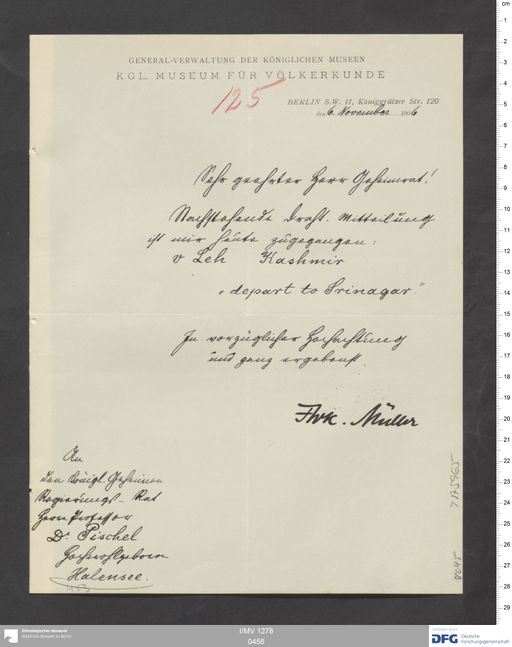 GENERAL-VERWALTUNG DER KÖNIGLICHEN MUSEEN
KGL. MUSEUM FÜR VÖLKERKUNDE
125
BERLIN S.W. 11, Königgrätzer Str. 120
den 6. November 1906
Sehr geehrter Herr Geheimrat!
Nachstehende draht. Mitteilung
ist mir heute zugegangen:
v Leh Kashmir
"depart to Srinagar."
In vorzüglicher Hochachtung
und ganz ergebenst
FWK. Müller
An
den Königl. Geheimen
Regierungs-Rat
Herrn Professor
Dr. Pischel
Hochwohlgeboren
Halensee.
I/MV 1278
0456
Ethnologisches Museum
Staatliche Museen zu Berlin
DFG
Deutsche
Forschungsgemeinschaft